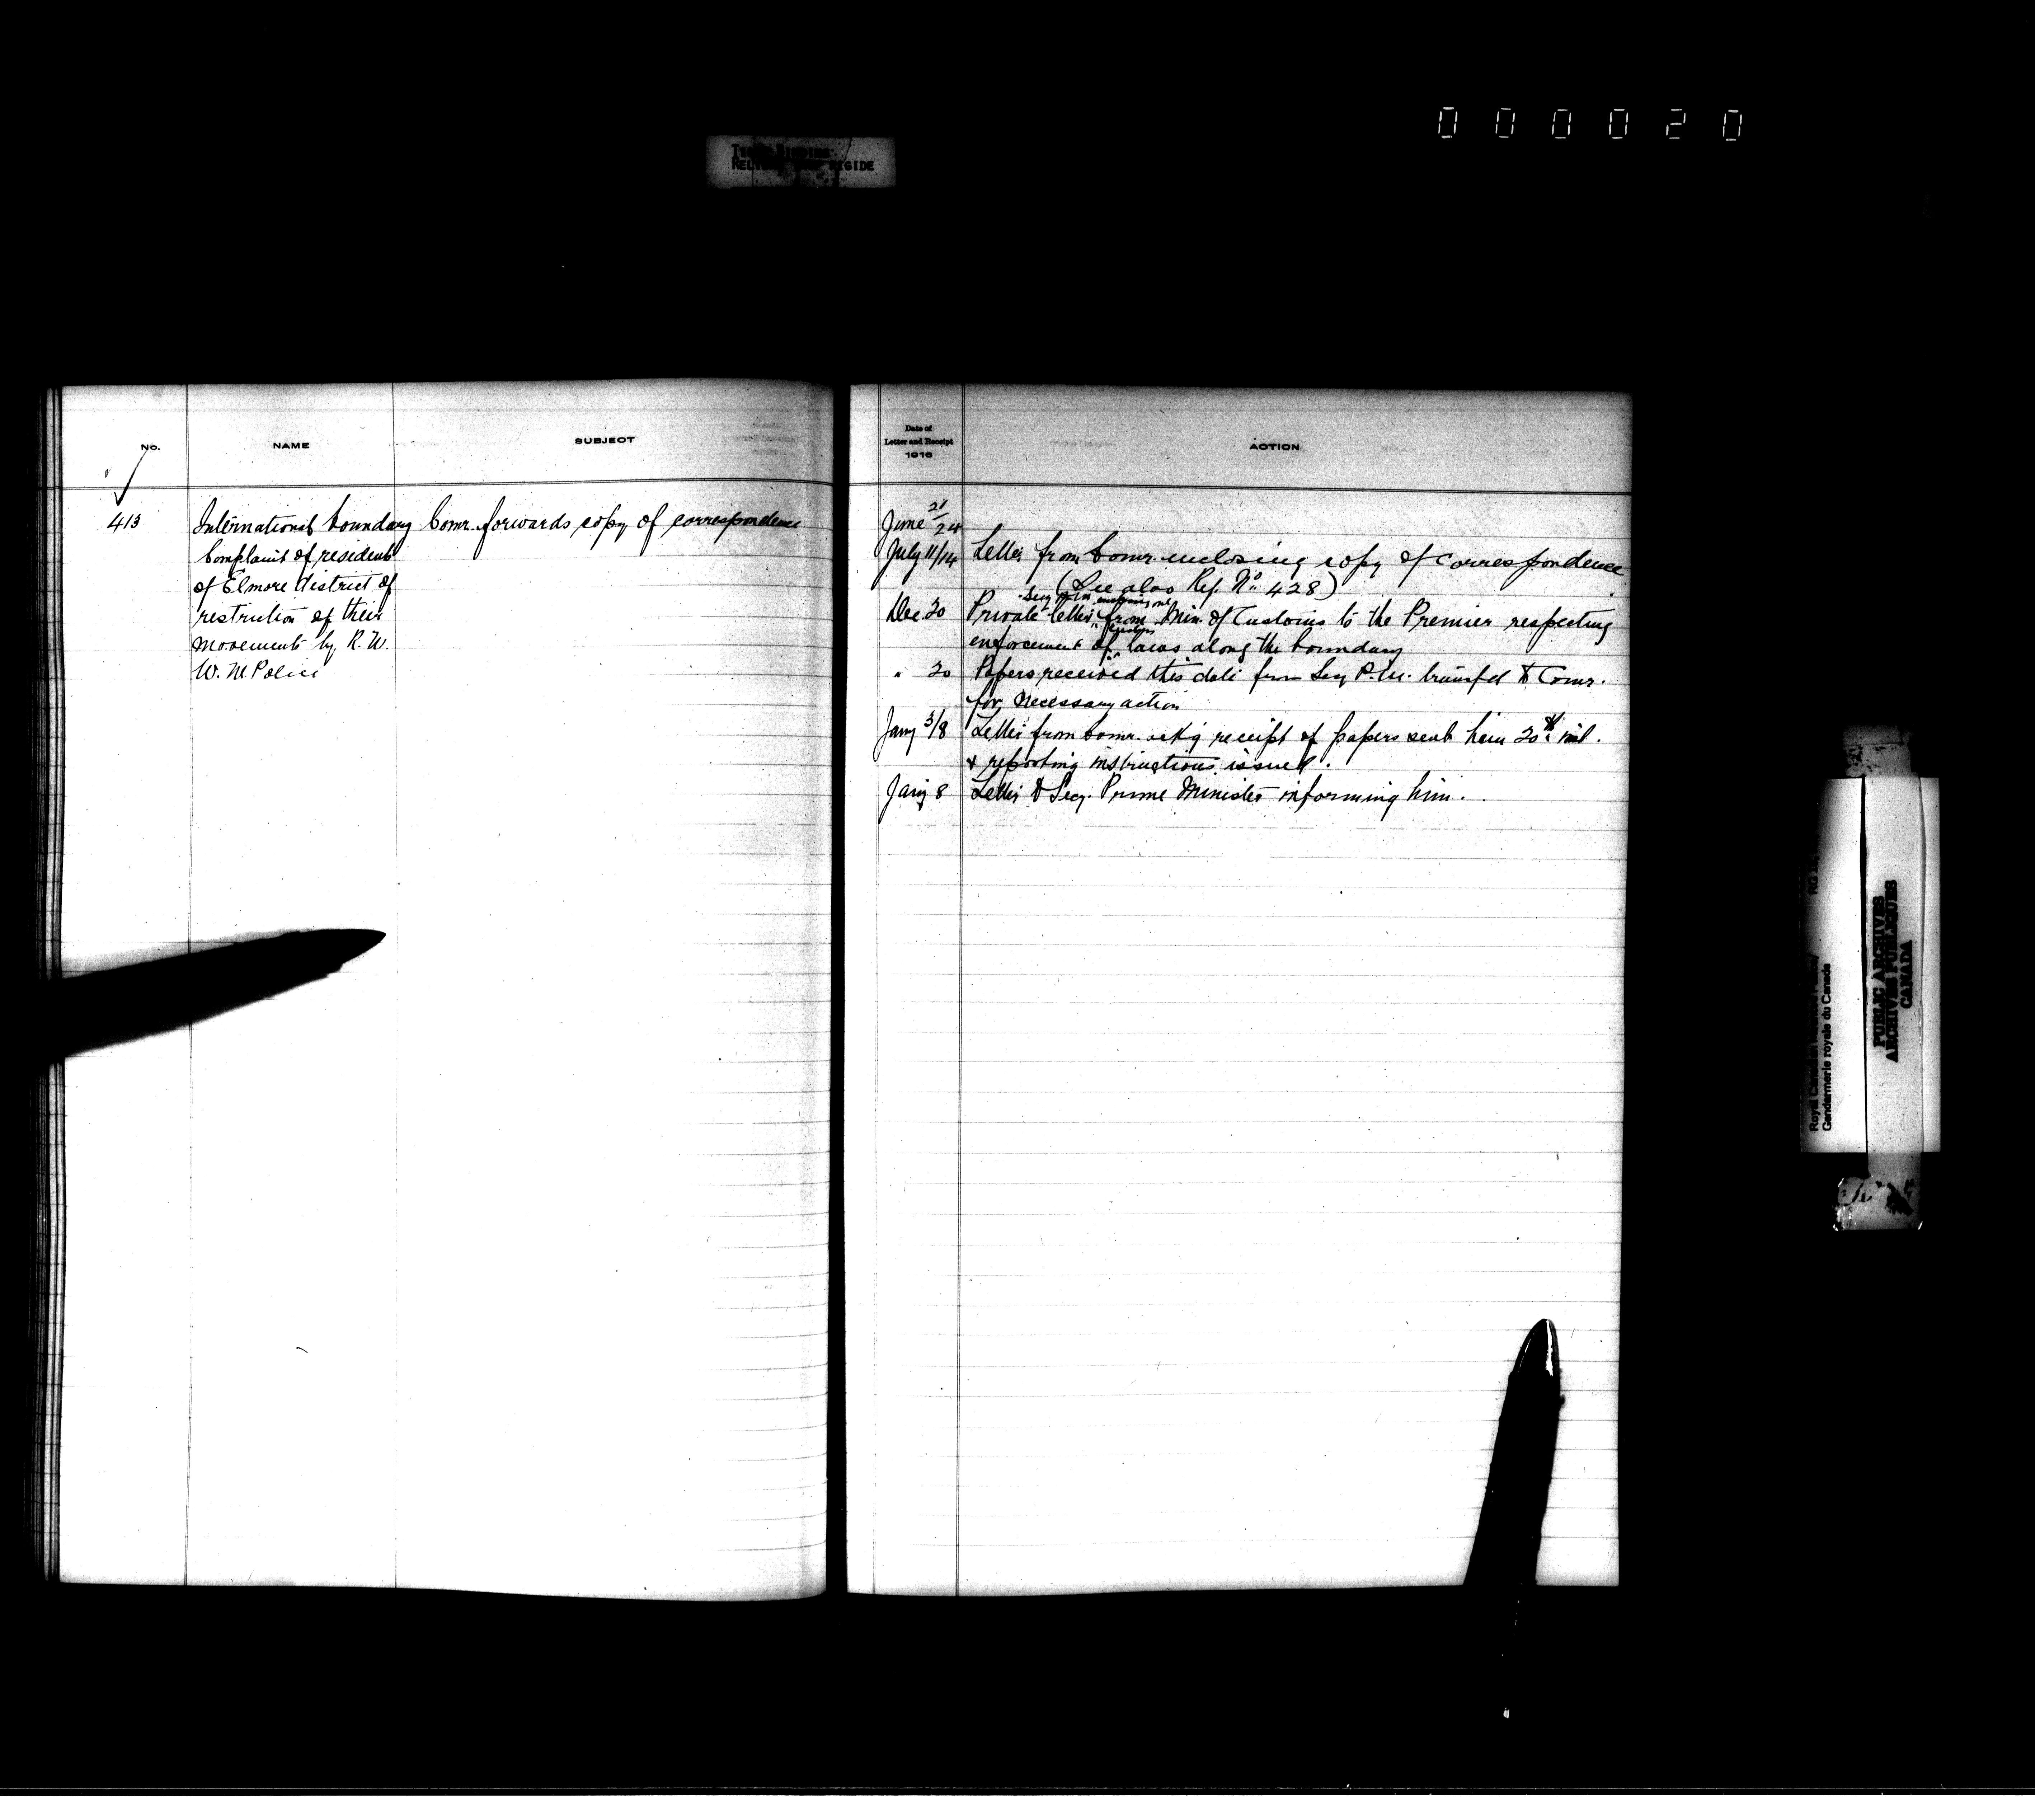 000020
No.
NAME
SUBJECT
413
International boundary Comr. forwards copy of correspondence
Complaint of residents
of Elmore district of
restriction of their
movements by R. N.
W. M Police
Date of
Letter and Receipt
1916
ACTION
June 21/24
July 11/14 Letter from Comr. enclosing copy of correspondence
(See also Ref. No. 428)
Secy P.M. enclosing one
Dec 20 Private letter from Min. of Customs to the Premier respecting
enforcement of laws along the boundary
" 20 Papers received this date from Secy P.M. transfd to Comr.
for necessary action
Jany 3/8 Letter from Comr. ackg receipt of papers sent him 20th inst.
& reporting instructions issued.
Jany 8 Letter to Secy. Prime Minister informing him.
Gendarmerie royale du Canada
PUBLIC ARCHIVES
ARCHIVES PUBLIQUES
CANADA